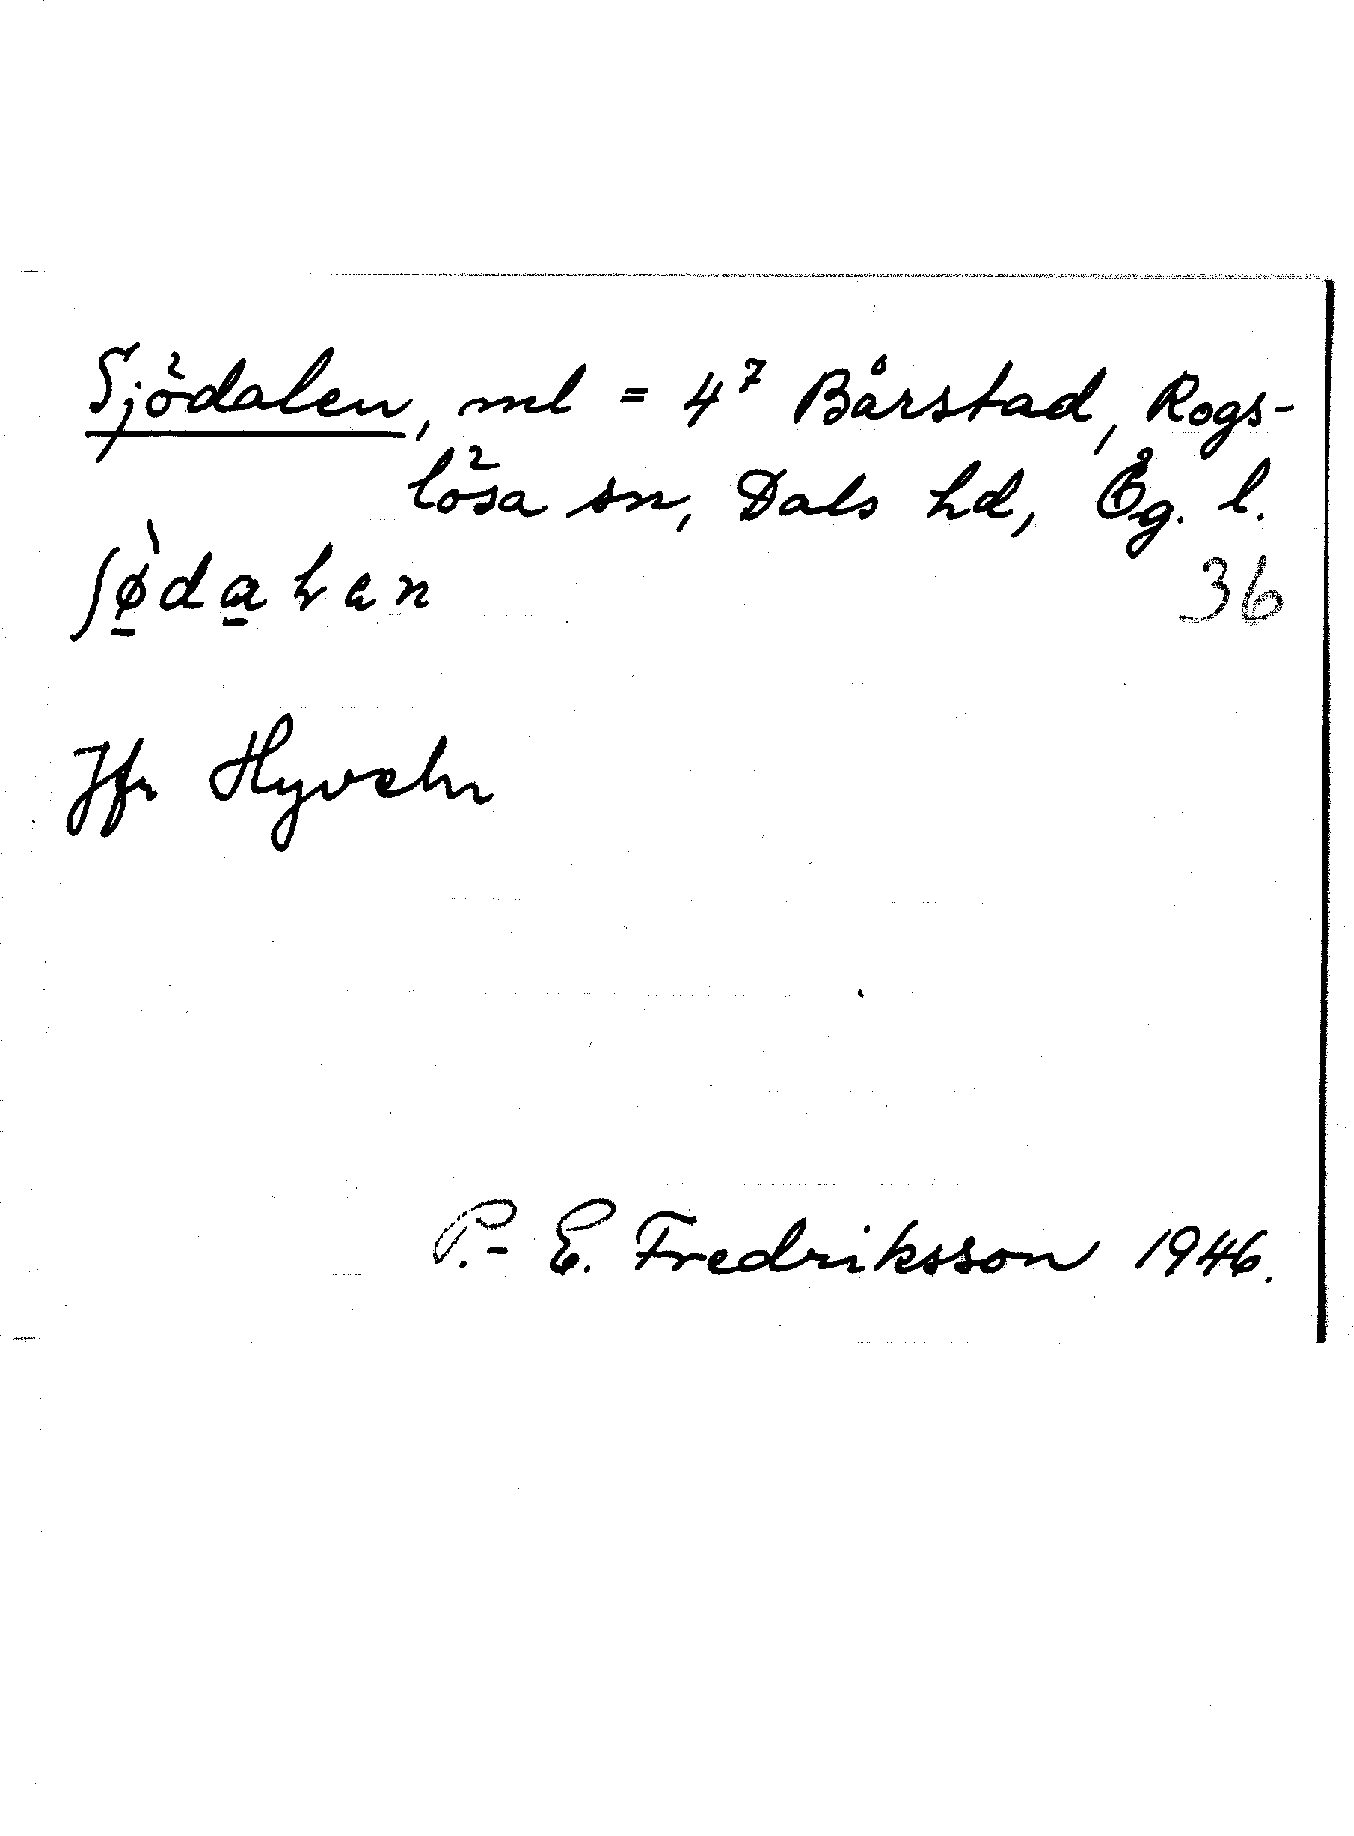 Sjödalen, ml = 4⁷ Bårstad, Rogs-
lösa sn, Dals hd, Ög. l.
ʃø̀dalen
36
Jfr Hyveln
P.-E. Fredriksson 1946.